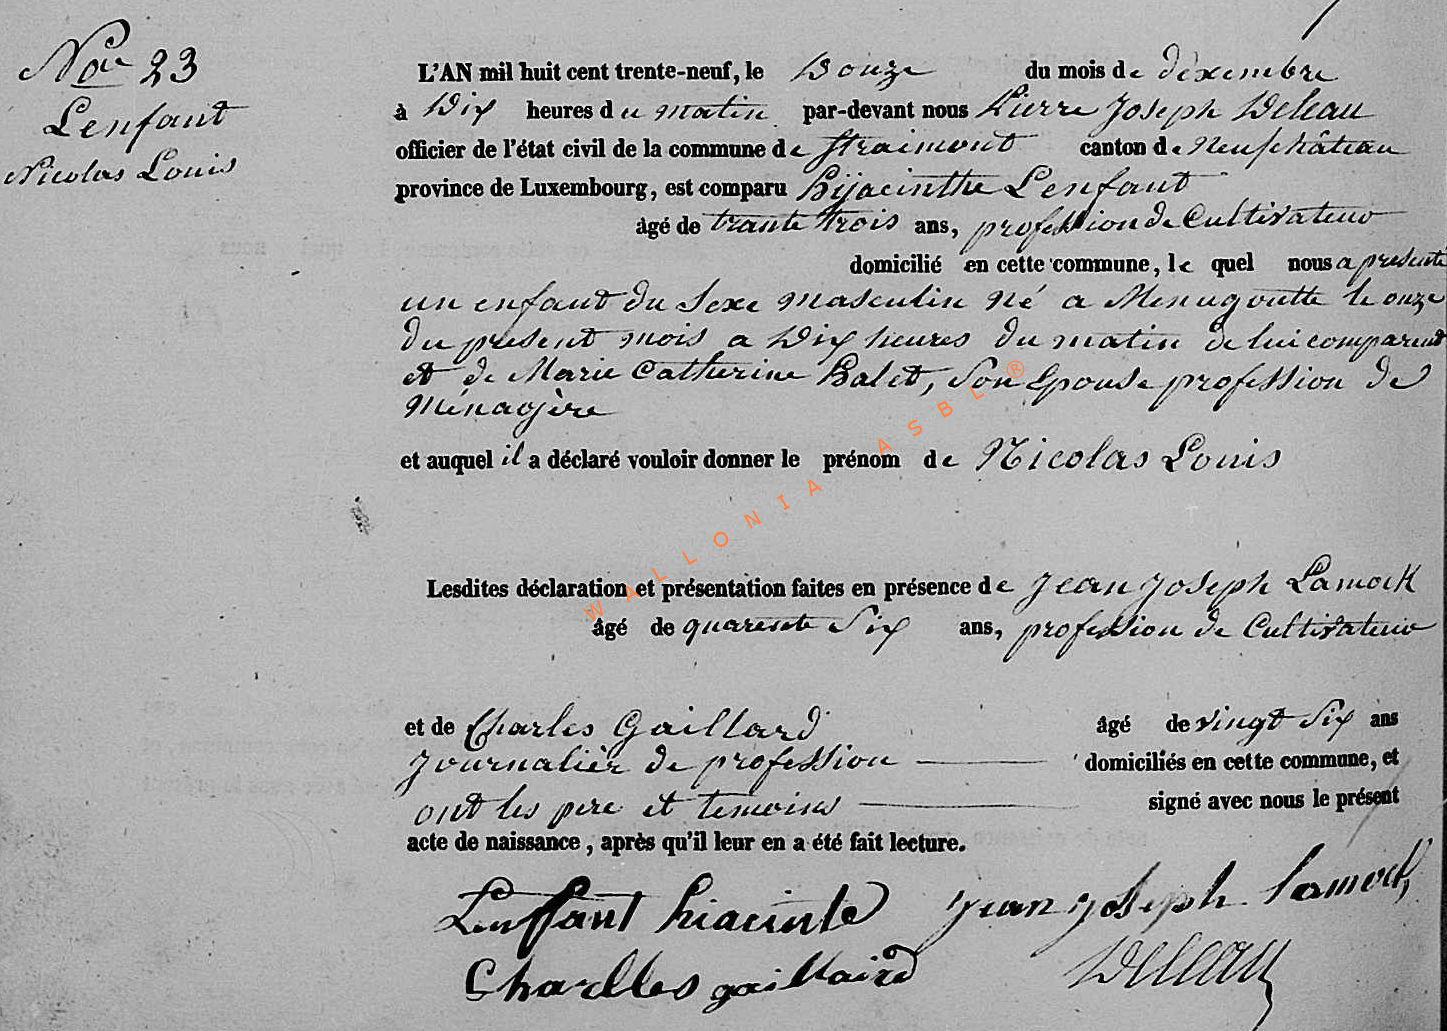 Nos 23
Lenfant
Nicolas Louis
L'AN mil huit cent trente-neuf, le Douze du mois de déxembre
à Dix heures du matin par-devant nous Pierre Joseph Deleau
officier de l'état civil de la commune de Straimont canton de Neufchâteau
province de Luxembourg, est comparu hijacinthe Lenfant
âgé de trante trois ans, profession de Cultivateur
domicilié en cette commune, le quel nous a présenté
un enfant du Sexe masculin né a Menugoutte le onze
du présent mois a Dix heures du matin de lui comparent
et de Marie Catherine Halet, Son Epouse profession de
Ménagère
et auquel il a déclaré vouloir donner le prénom de Nicolas Louis
WALLONIA ASBL ®
Lesdites déclaration et présentation faites en présence de Jean Joseph Lamock
âgé de quarente Six ans, profession de Cultivateur
et de Charles Gaillard âgé de vingt Six ans
Journalièr de profession domiciliés en cette commune, et
ont les pere et temoins signé avec nous le présent
acte de naissance, après qu'il leur en a été fait lecture.
Lenffant hiacinte Jean joseph lamock
Charlles gaillaird Deleau